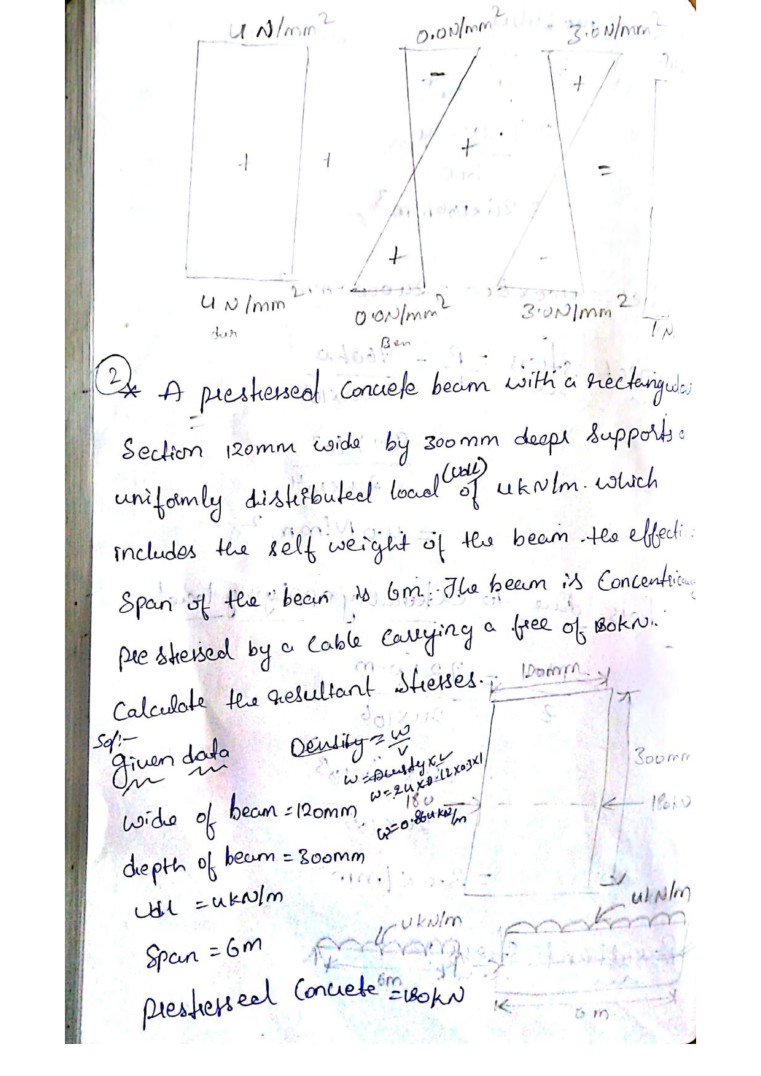 4 N/mm² 0.0N/mm² 3.0N/mm²
- +
+ + + =
+ -
4 N/mm² 0.0N/mm² 3.0N/mm²
Ben
2 * A prestressed Concrete beam with a rectangular
Section 120mm wide by 300mm deep supports
uniformly distributed load (udl) of 4kN/m. which
includes the self weight of the beam. the effecti
Span of the bean is 6m. The beam is Concentric
prestressed by a Cable Carrying a free of 180kN.
Calculate the resultant Stresses.
120mm
Sol:-
given data
Density = w/v
w = Density x v
w = 24 x 0.12 x 0.3 x 1
w = 0.864 kN/m
300mm
180
180kN
wide of beam = 120mm
depth of beam = 300mm
udl = 4kN/m
4kN/m
4kN/m
Span = 6m
6m
6m
prestressed Concrete = 180kN